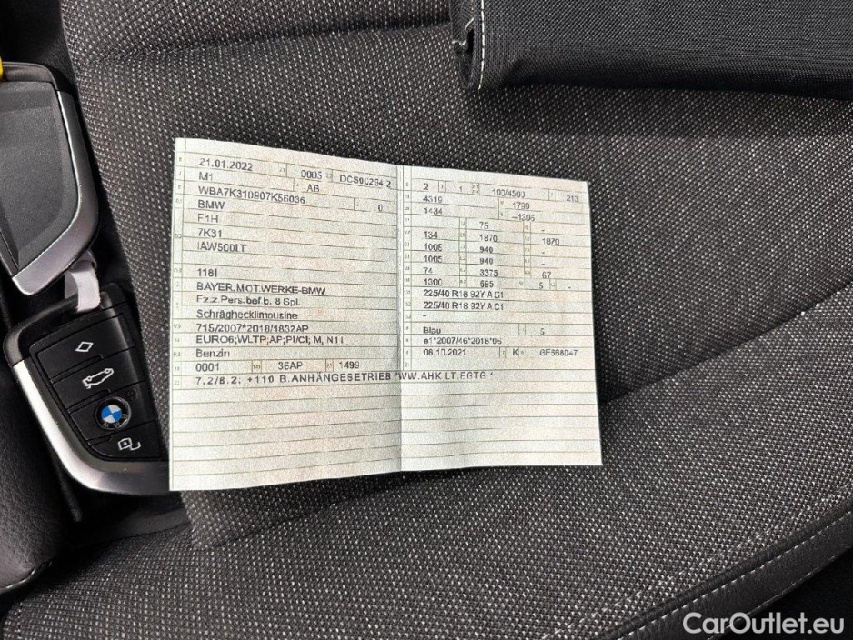 21.01.2022 0005
M1 AB
WBA7K310907K56036 0
BMW
F1H
7K31
IAW500LT
118I
BAYER.MOT.WERKE-BMW
Fz.z.Pers.bef.b. 8 Spl.
Schräghecklimousine
715/2007*2018/1832AP
EURO6;WLTP;AP;PI/CI; M, N1 I
Benzin
0001 36AP 1499
7.2/8.2: +110 B.ANHÄNGEBETRIEB *WW.AHK LT.EGTG.*
2 1 100/4500 213
4319 1799
1434
75 -
134 1870 1870
1005 940 -
1005 940 -
74 3375 67
1300 695 5 -
225/40 R18 92Y A C1
225/40 R18 92Y A C1
-
Blau 5
e1*2007/46*2018*06
08.10.2021 K
CarOutlet.eu